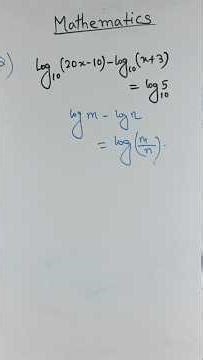 Mathematics
Q) log₁₀(20x-10)-log₁₀(x+3)
= log₁₀5
log m - log n
= log(m/n).